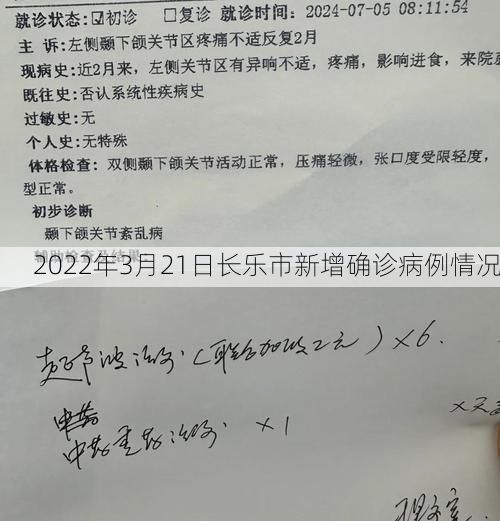 就诊状态:☑初诊 □复诊 就诊时间: 2024-07-05 08:11:54
主 诉:左侧颞下颌关节区疼痛不适反复2月
现病史:近2月来，左侧关节区有异响不适，疼痛，影响进食，来院
既往史:否认系统性疾病史
过敏史:无
个人史:无特殊
体格检查: 双侧颞下颌关节活动正常，压痛轻微，张口度受限轻度，
型正常。
初步诊断
颞下颌关节紊乱病
辅助检查及结果
2022年3月21日长乐市新增确诊病例情况
超声波治疗(联合加收2元)×6.
中药
中药熏药治疗. ×1
×天